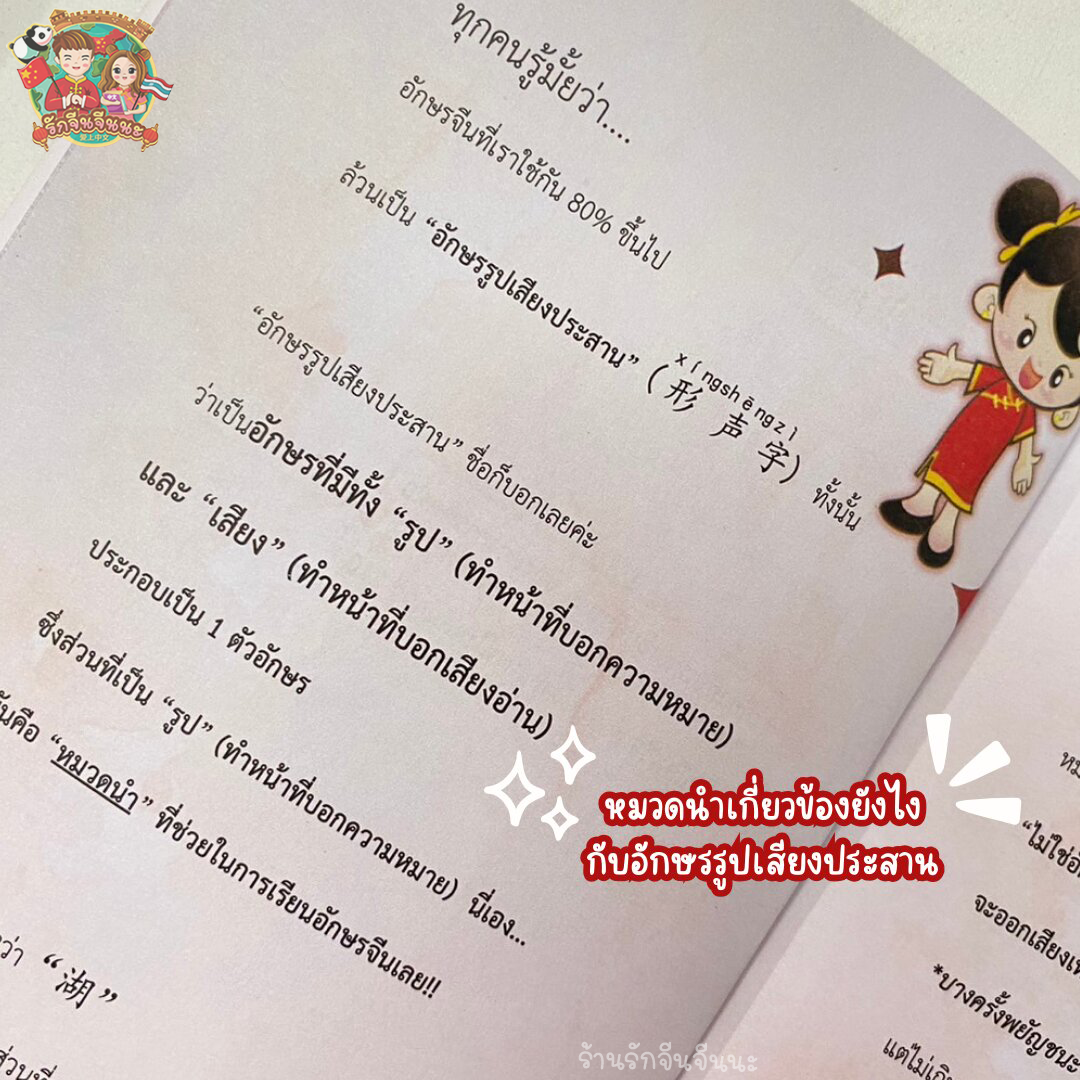 รักจีนจีนนะ
爱上中文
ทุกคนรู้มั้ยว่า....
อักษรจีนที่เราใช้กัน 80% ขึ้นไป
ล้วนเป็น “อักษรรูปเสียงประสาน” (形声字) ทั้งนั้น
xíngshēngzì
“อักษรรูปเสียงประสาน” ชื่อก็บอกเลยค่ะ
ว่าเป็นอักษรที่มีทั้ง “รูป” (ทำหน้าที่บอกความหมาย)
และ “เสียง” (ทำหน้าที่บอกเสียงอ่าน)
ประกอบเป็น 1 ตัวอักษร
ซึ่งส่วนที่เป็น “รูป” (ทำหน้าที่บอกความหมาย) นี่เอง...
“หมวดนำ” ที่ช่วยในการเรียนอักษรจีนเลย!!
ว่า “湖”
หมวดนำเกี่ยวข้องยังไง
กับอักษรรูปเสียงประสาน
“ไม่ใช่
จะออกเสียง
*บางครั้งพยัญชนะ
ร้านรักจีนจีนนะ